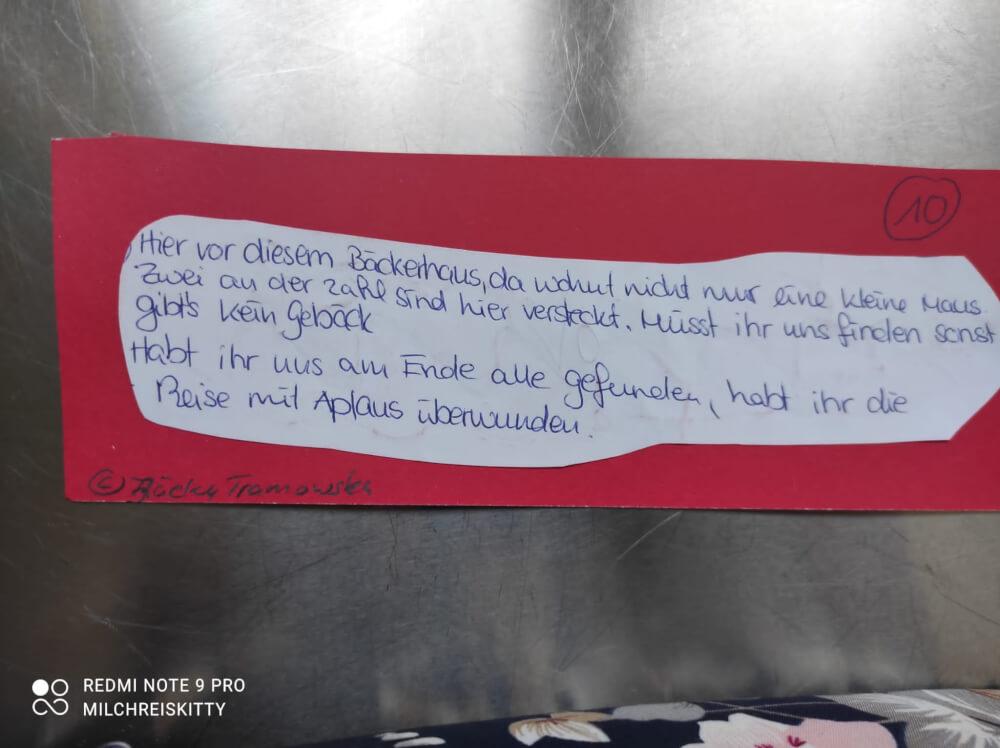 10
Hier vor diesem Bäckerhaus, da wohnt nicht nur eine kleine Maus.
Zwei an der Zahl sind hier versteckt. Müsst ihr uns finden sonst
gibt's kein Gebäck
Habt ihr uns am Ende alle gefunden, habt ihr die
Reise mit Aplaus überwunden.
© Bäcker
REDMI NOTE 9 PRO
MILCHREISKITTY